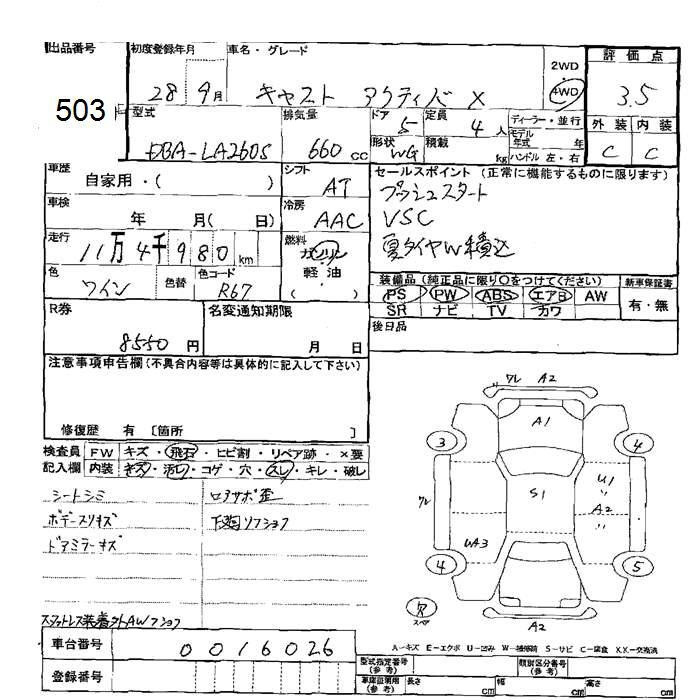 出品番号
503
初度登録年月
28 9月
車名・グレード
キャスト アクティバ X
2WD
4WD
評価点
3.5
外装 内装
C C
型式
DBA-LA260S
排気量
660 cc
ドア
5
定員
4 人
形状
WG
積載
kg
ディーラー・並行
モデル年式 年
ハンドル 左・右
車歴
自家用・( )
シフト
AT
車検
年 月( 日)
冷房
AAC
走行
11万4千980 km
燃料
ガソリン
軽油
( )
色
ワイン
色替
色コード
R67
セールスポイント (正常に機能するものに限ります)
プッシュスタート
VSC
夏タイヤW積込
装備品 (純正品に限り○をつけてください)
PS PW ABS エアB AW
SR ナビ TV カワ
新車保証書
有・無
後日品
R券
8550 円
名変通知期限
月 日
注意事項申告欄 (不具合内容等は具体的に記入して下さい)
修復歴 有 [箇所 ]
検査員記入欄
FW キズ・飛石・ヒビ割・リペア跡・×要
内装 キズ・汚レ・コゲ・穴・スレ・キレ・破レ
シートシミ
ボデースリキズ
ドアミラーキズ
ロアサポ歪
下廻リフショク
スタットレス装着外AWフショク
車台番号
0016026
登録番号
ワレ A2
A1
3
4
ワレ
S1
U1
〃
A2
〃
UA3
4
5
スペア
A2
A-キズ E-エクボ U-凹み W-補修跡 S-サビ C-腐食 X.XX-交換済
型式指定番号 (参考)
類別区分番号 (参考)
車庫証明用 (参考)
長さ cm
幅 cm
高さ cm